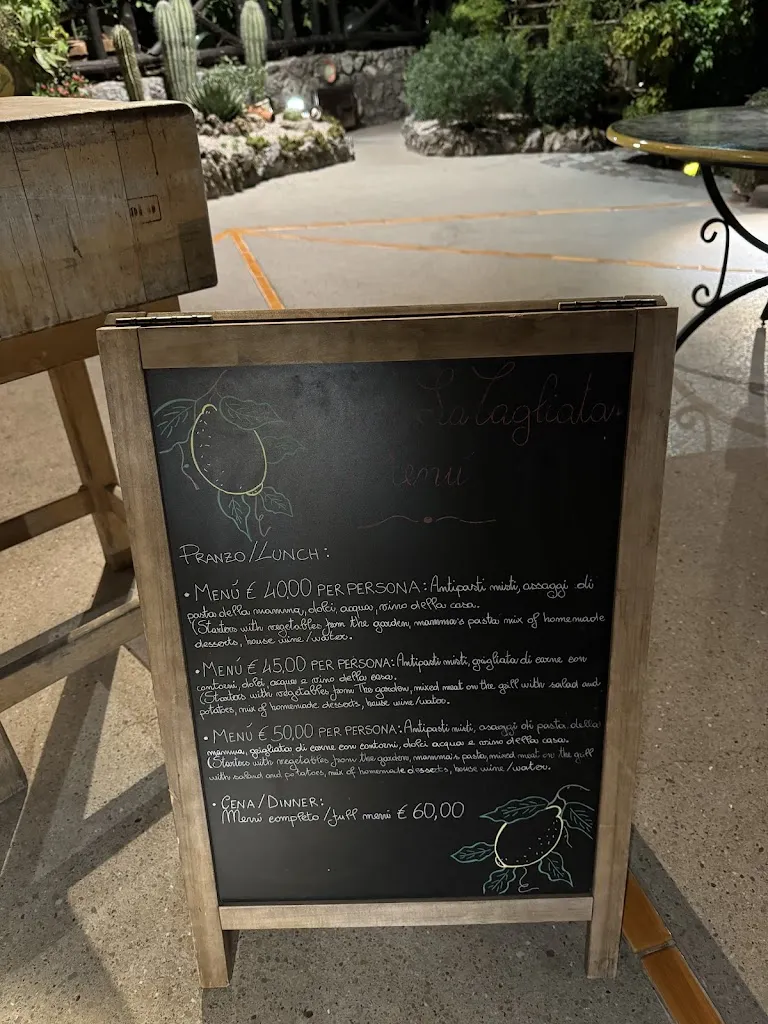 La Tagliata
Menú
PRANZO/LUNCH:
• MENÚ € 40,00 PER PERSONA: Antipasti misti, assaggi di
pasta della mamma, dolci, acqua, vino della casa.
(Starters with vegetables from the garden, mamma's pasta mix of homemade
desserts, house wine/water.
• MENÚ € 45,00 PER PERSONA: Antipasti misti, grigliata di carne con
contorni, dolci, acqua e vino della casa.
(Starters with vegetables from The garden, mixed meat on the grill with salad and
potatoes, mix of homemade desserts, house wine/water.
• MENÚ € 50,00 PER PERSONA: Antipasti misti, assaggi di pasta della
mamma, grigliata di carne con contorni, dolci acqua e vino della casa.
(Starters with vegetables from the garden, mamma's pasta, mixed meat on the grill
with salad and potatoes, mix of homemade desserts, house wine/water.
• CENA/DINNER:
Menú completo/full menú € 60,00